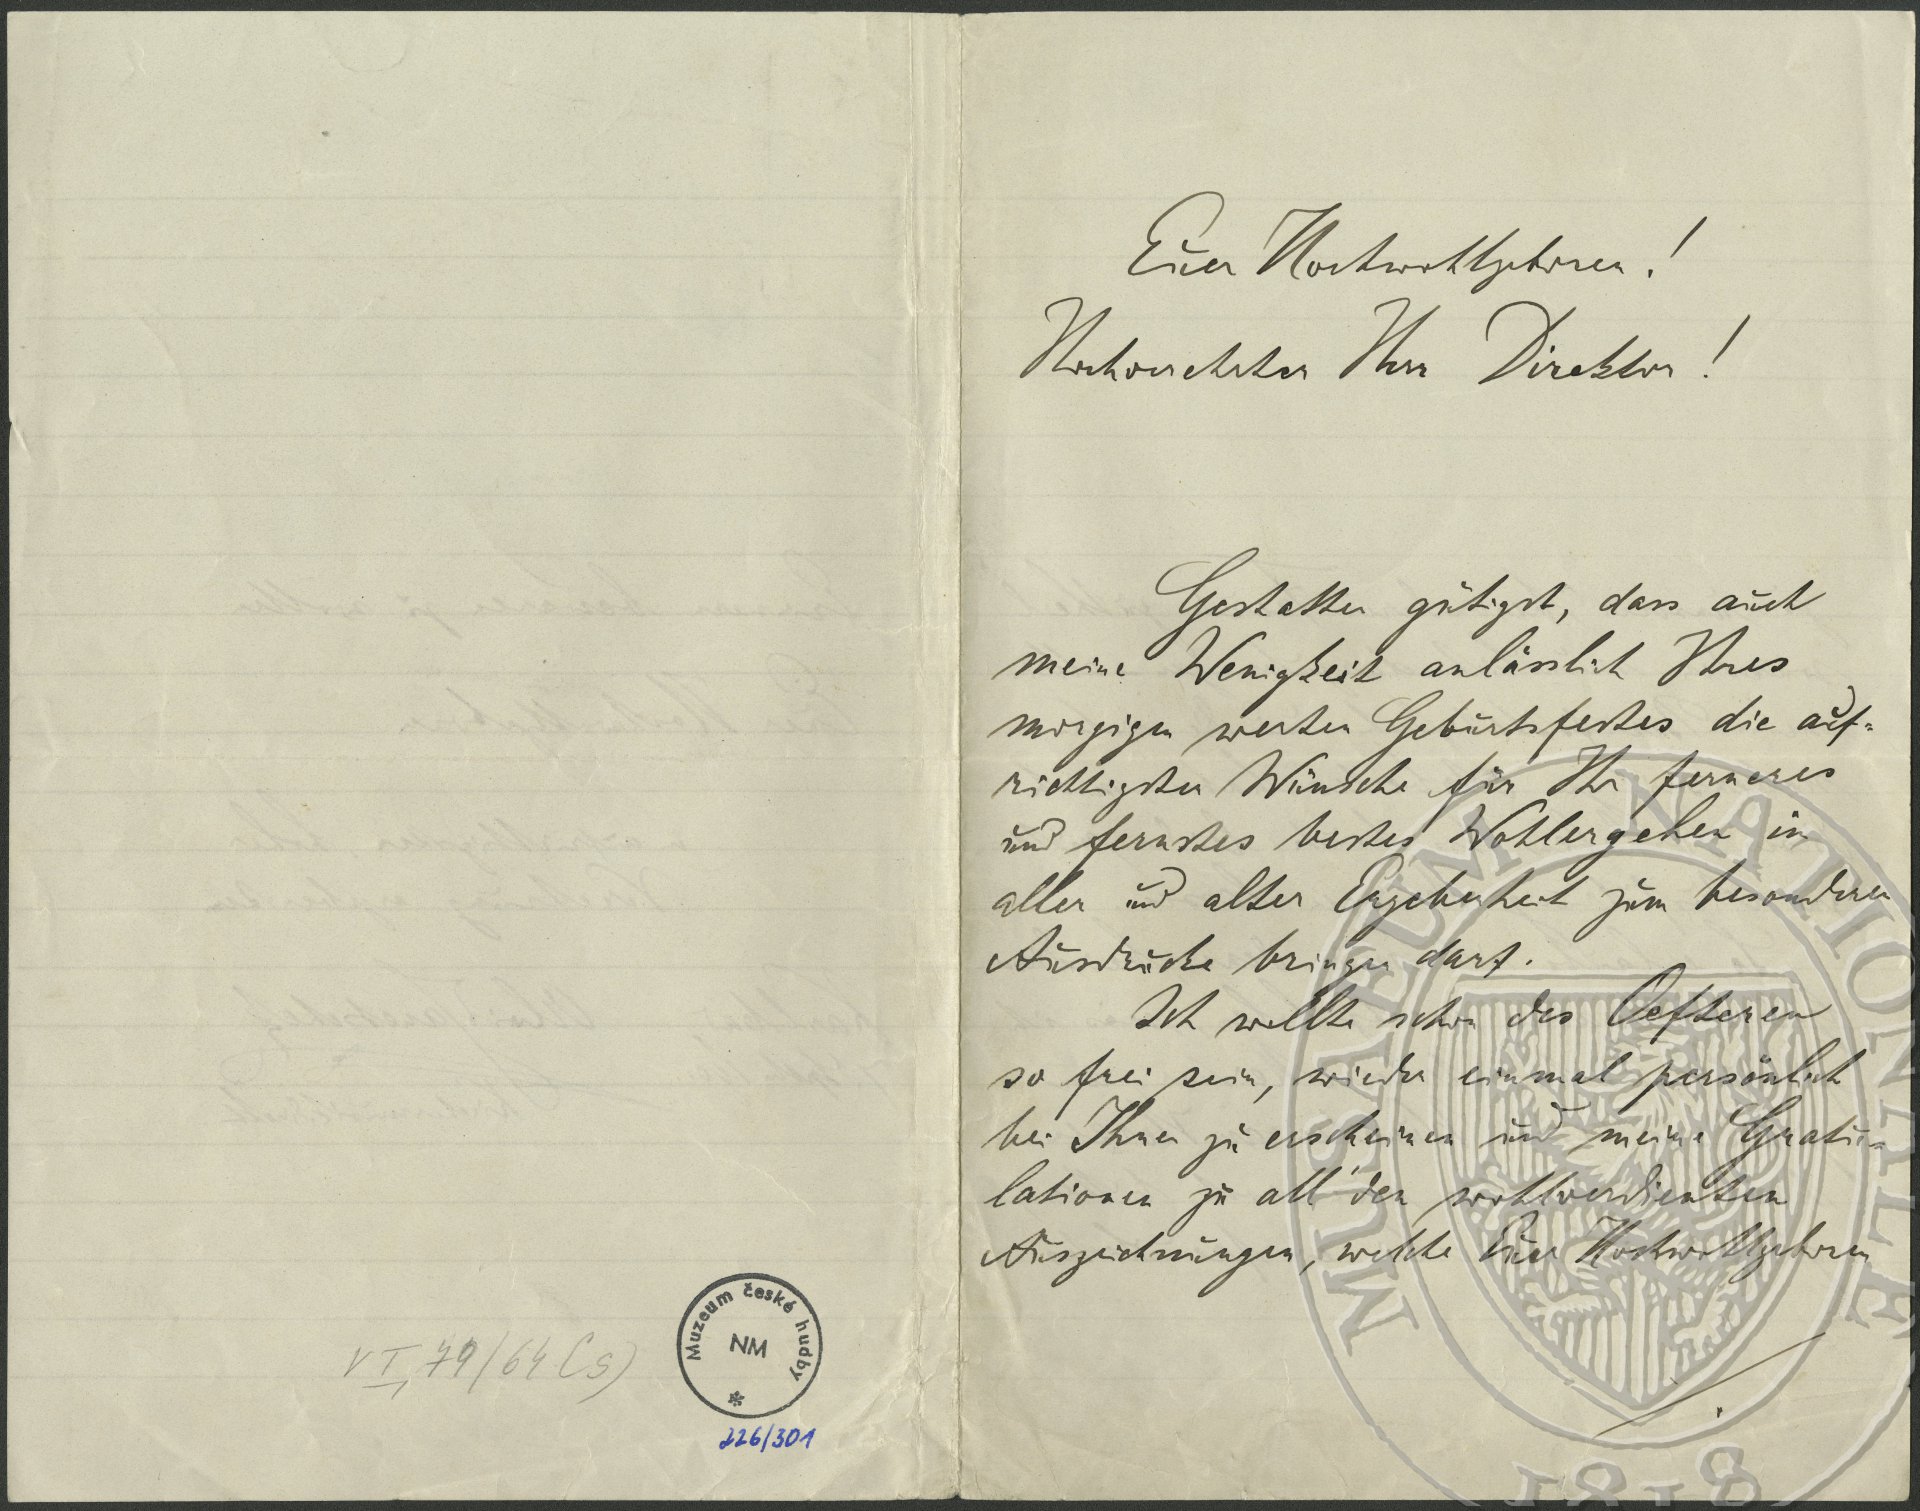 Euer Hochwohlgeboren!
Hochverehrter Herr Direktor!
Gestatten gütigst, dass auch
meine Wenigkeit anlässlich Ihres
morgigen werten Geburtsfestes die auf=
richtigsten Wünsche für Ihr ferneres
und fernstes bestes Wohlergehen in
aller und alter Ergebenheit zum besonderen
Ausdrucke bringen darf.
Ich wollte schon des Oefteren
so frei sein, wieder einmal persönlich
bei Ihnen zu erscheinen und meine Gratu=
lationen zu all' den wohlverdienten
Auszeichnungen, welche Euer Hochwohlgeboren
VI, 79/64 Cs)
Muzeum české hudby
NM
226/301
MUSAEUM NATIONALE
1818